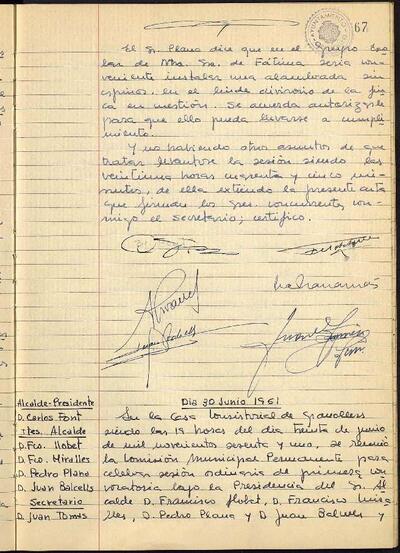 67
AYUNTAMIENTO
El Sr. Plana dice que en el Grupo Esco-
lar de Ntra. Sra. de Fátima sería con-
veniente instalar una alambrada sin
espinos en el linde divisorio de la fin-
ca en cuestión. Se acuerda autorizarle
para que ello pueda llevarse a cumpli-
miento.
Y no habiendo otros asuntos de que
tratar levantóse la sesión siendo las
veintiuna horas cuarenta y cinco mi-
nutos, de ella extiendo la presente acta
que firman los Sres. concurrentes con-
migo el secretario; certifico.
Dia 30 Junio 1961
Alcalde-Presidente
D. Carlos Font
Ttes. Alcalde
D. Fco. Llobet
D. Fco. Miralles
D. Pedro Plana
D. Juan Balcells
Secretario
D. Juan Tomás
En la Casa Consistorial de Granollers
siendo las 19 horas del día treinta de junio
de mil novecientos sesenta y uno, se reunió
la Comisión Municipal Permanente para
celebrar sesión ordinaria de primera con-
vocatoria bajo la Presidencia del Sr. Al-
calde D. Francisco Llobet, D. Francisco Mira-
lles, D. Pedro Plana y D. Juan Balcells y